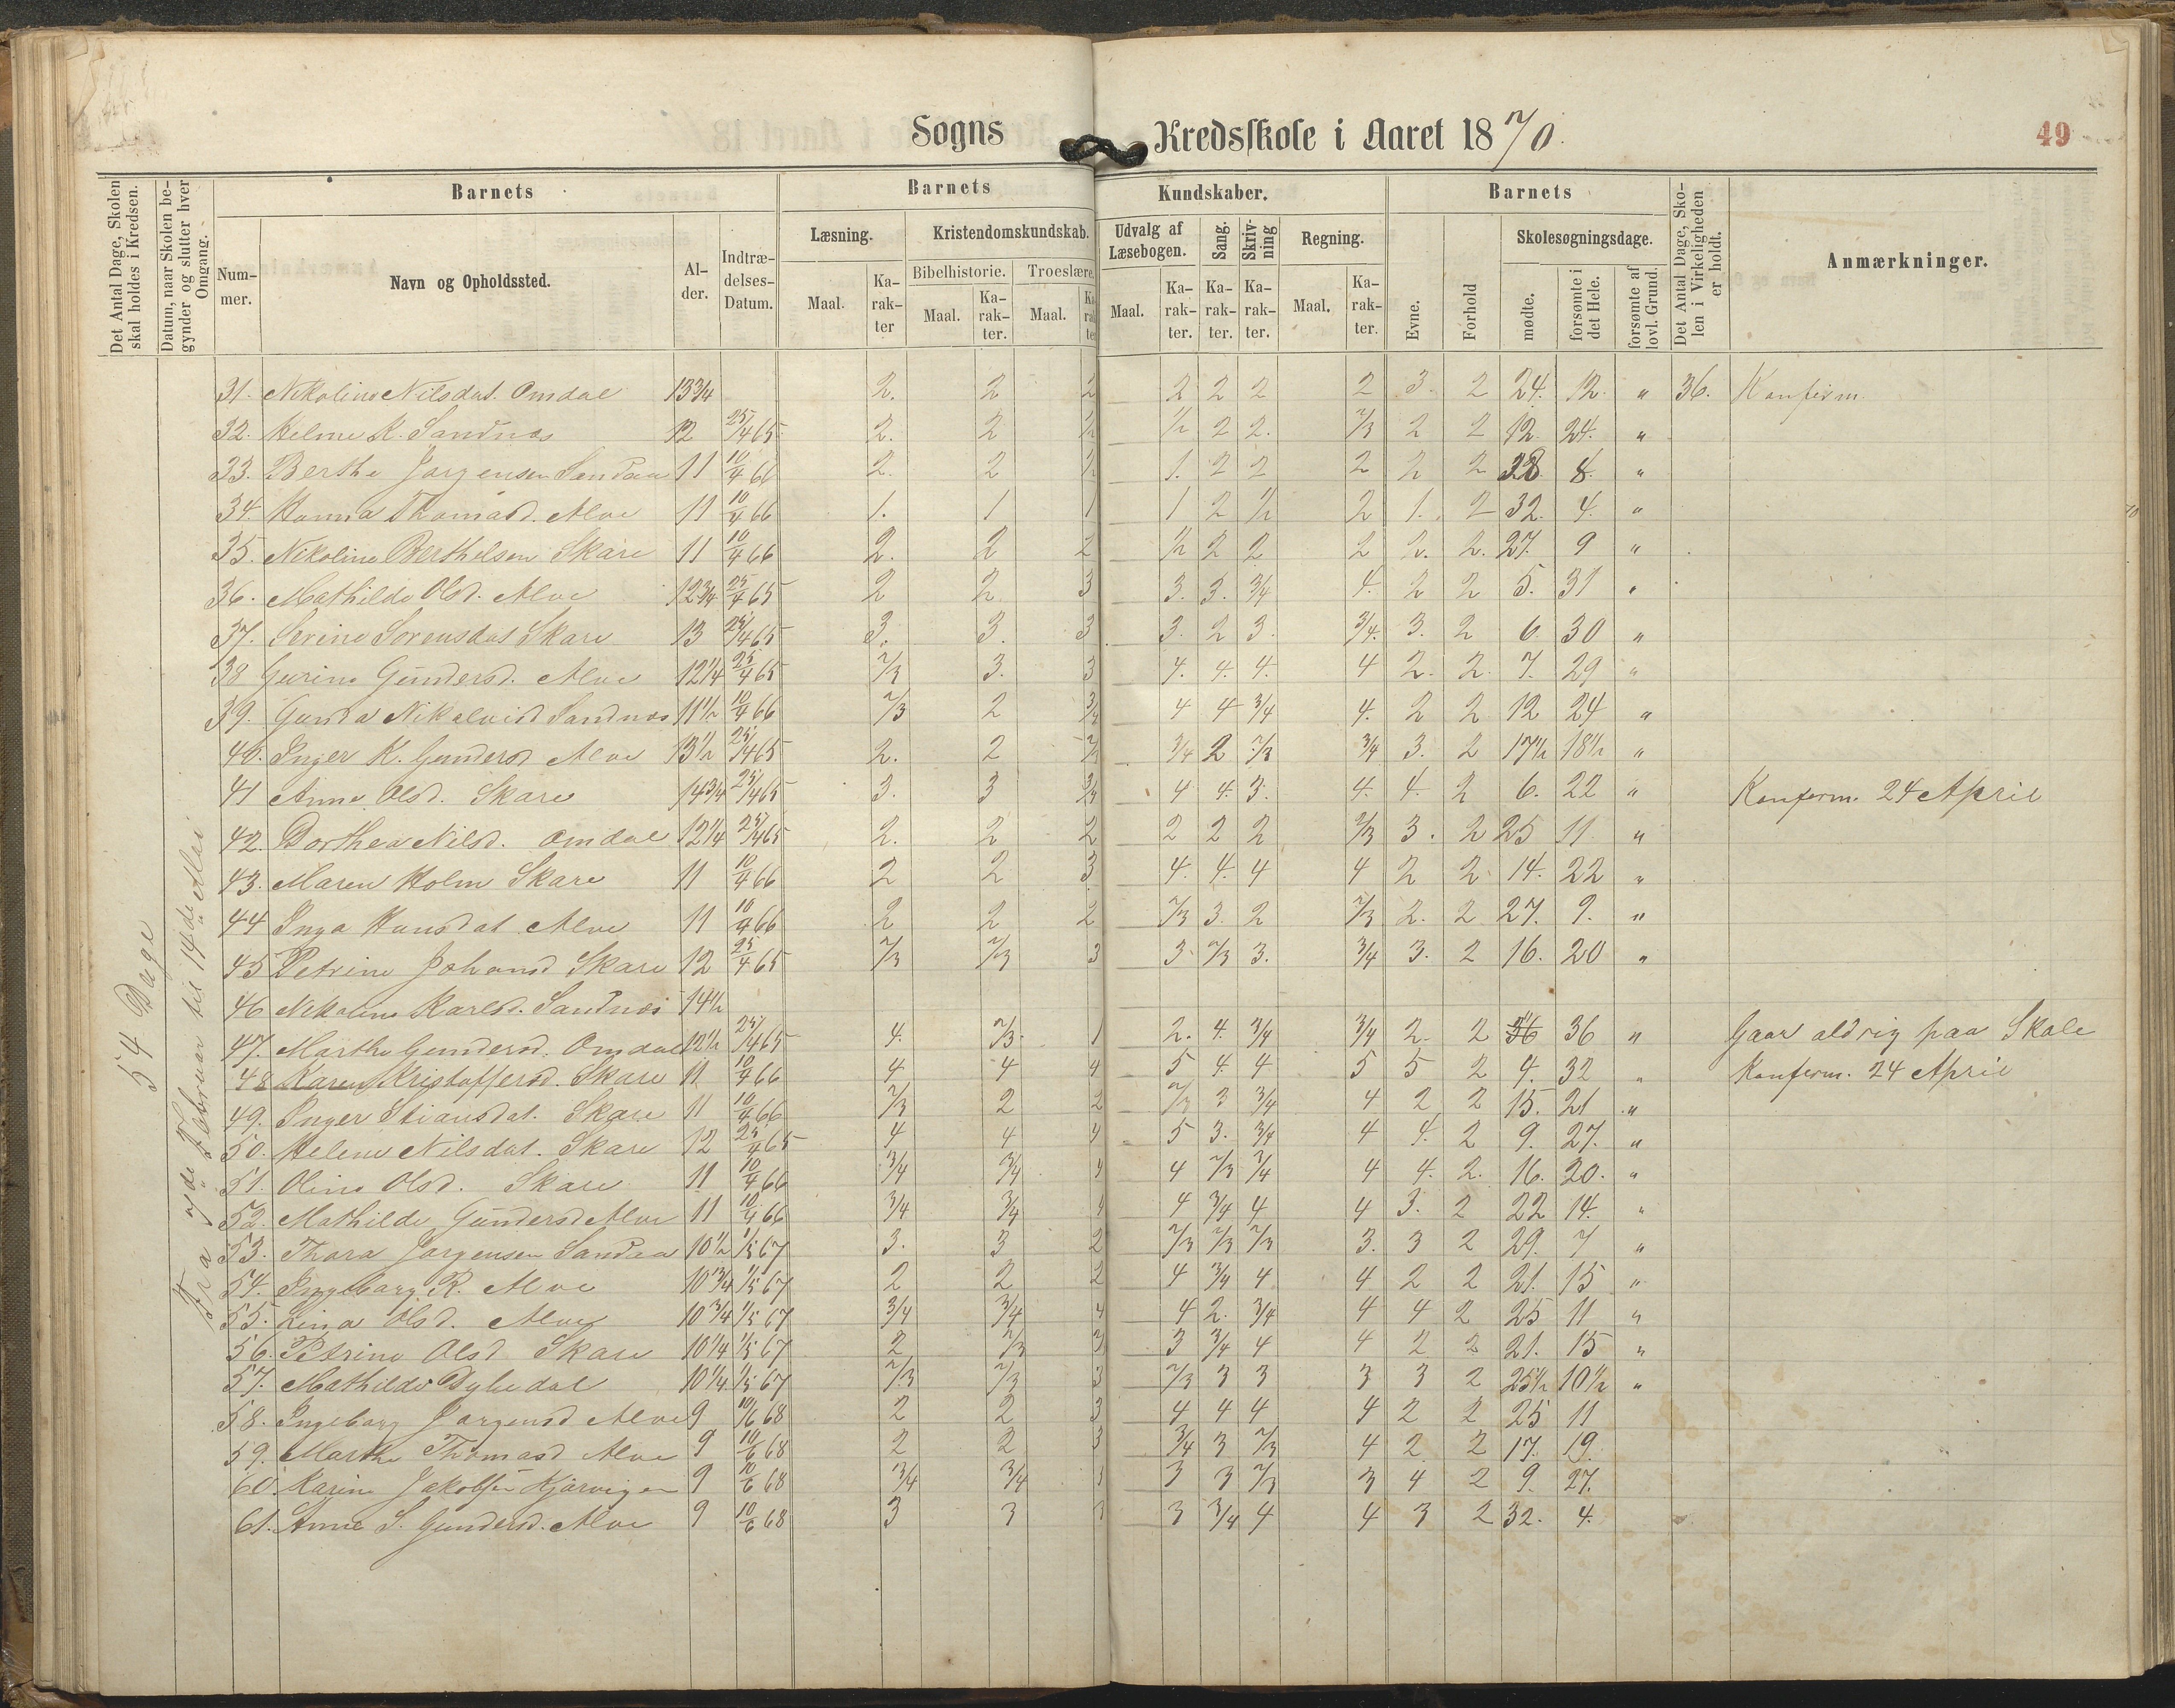 Sogns Kredsskole i Aaret 1870.
49
Det Antal Dage, Skolen skal holdes i Kredsen.
Datum, naar Skolen begynder og slutter hver Omgang.
Barnets
Nummer.
Navn og Opholdssted.
Alder.
Indtrædelses-Datum.
Barnets Kundskaber.
Læsning.
Maal.
Karakter
Kristendomskundskab.
Bibelhistorie.
Maal.
Karakter.
Troeslære.
Maal.
Udvalg af Læsebogen.
Maal.
Karakter.
Sang.
Karakter.
Skrivning
Karakter.
Regning.
Maal.
Karakter.
Barnets
Evne.
Forhold
Skolesøgningsdage.
mødte.
forsømte i det Hele.
forsømte af lovl. Grund.
Det Antal Dage, Skolen i Virkeligheden er holdt.
Anmærkninger.
54 Dage
Fra Februar til 14de Mai
31. Nikoline Nilsdat. Omdal 13 3/4 2. 2 2 2 2 2 2 3. 2 24. 12. " 36. Konfirm.
32. Helme K. Sandnes 12 25/4 65 2. 2 1/2 1/2 2 2. 2/3 2 2 12. 24. "
33. Berthe Jørgensen Sandaa 11 10/4 66 2. 2 1/2 1. 2 2 2 2 2 28 8. "
34. Hanna Thomasd. Alve 11 10/4 66 1. 1 1 1 2 1/2 2 1. 2 32. 4. "
35. Nikoline Berthelsen Skare 11 10/4 66 2. 2 2 1/2 2 2 2 2. 2. 27. 9 "
36. Mathilde Olsd. Alve 12 3/4 25/4 65 2 2 3 3. 3. 3/4 4. 2 2 5. 31 "
37. Serine Sorensdat Skare 13 25/4 65 3. 3. 3 3. 2 3. 3/4. 3. 2 6 30 "
38 Gurine Gundersd. Alve 12 1/4 25/4 65 2/3 3. 3 4. 4. 4. 4 2. 2. 7. 29 "
39. Gunda Sandnes 11 1/2 10/4 66 2/3 2 3/4 4 4 3/4 4. 2 2 12 24 "
40. Inger K. Gundersd Alve 13 1/2 25/4 65 2. 2 2/3 3/4 2 2/3 3/4 3. 2 17 1/2 18 1/2 "
41 Anne Olsd. Skare 14 3/4 25/4 65 3. 3 3/4 4 4. 3. 4. 4. 2 6. 22 " Konferm. 24 April
42. Dorthea Nilsd. Omdal 12 1/4 25/4 65 2. 2 2 2 2 2 2/3 3. 2 25 11 "
43. Maren Holm Skare 11 10/4 66 2 2 3 4. 4. 4 4 2 2 14. 22 "
44 Inga Hansdat Alve 11 10/4 66 2 2 2 2/3 3. 2 2/3 2. 2 27. 9. "
45 Petrine Johansd Skare 12 25/4 65 2/3 2/3 3 3 2/3 3. 3/4 3. 2 16. 20 "
46 Nikoline Karlsd. Sandnes 14 1/2
47. Marthe Gundersd. Omdal 12 1/2 25/4 65 4. 2/3. 1 2. 4. 3/4 3/4 2. 2 36 36 " Gaar aldrig paa Skole
48 Karen Kristoffersd. Skare 11 10/4 66 4 4 4 5 4 4 5 5 2 4. 32 " Konferm. 24 April
49. Inger Stiansdat. Skare 11 10/4 66 2/3 2 2 2/3 3 3/4 4 2 2 15. 21 "
50. Helene Nilsdat. Skare 12 25/4 65 4 4 4 5 3. 3/4 4 4. 2 9. 27. "
51. Oline Olsd. Skare 11 10/4 66 3/4 3/4 4 4 2/3 3/4 4 4. 2. 16. 20. "
52. Mathilde Gundersd Alve 11 10/4 66 3/4 3/4 4 4 3/4 4 4 3. 2 22 14. "
53. Thora Jørgensen Sandaa 10 1/2 1/5 67 3. 3 2 2/3 2/3 2/3 3. 3 2 29. 7 "
54. Ingeborg R. Alve 10 3/4 1/5 67 2 2 2 4 3/4 4 4 2 2 21. 15 "
55. Lina Olsd. Alve 10 3/4 1/5 67 3/4 3/4 4 4 2. 3/4 4 4 2 25 11 "
56. Petrine Olsd Skare 10 1/4 1/5 67 2 2/3 3 3/4 4 4 2 2 21. 15 "
57. Mathilde 10 1/4 1/5 67 2/3 2/3 3 2/3 3 3 3 3 2 25 1/2 10 1/2 "
58. Ingeborg Jørgensd Alve 9 10/6 68 2 2 3 4 4 4 4 2 2 25 11
59. Marthe Thomasd Alve 9 10/6 68 2 2 3 3/4 3 2/3 4 2 2 17. 19.
60. Karine Jakobsen Kjørvigen 9 10/6 68 3/4 3/4 3 3 2/3 3 4 2 9. 27.
61. Anne S. Gundersd. Alve 9 10/6 68 3 3 3 3 3/4 4 4 3 2 32. 4.